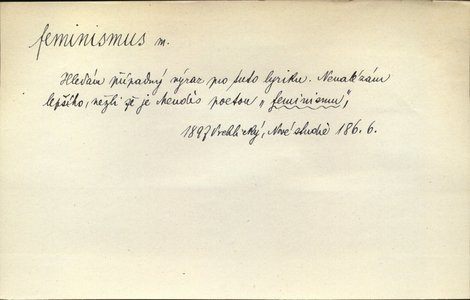 feminismus m.
Hledám případný výraz pro tuto lyriku. Nenalézám
lepšího, nežli že je Mendès poetou „feminismu",
1897 Vrchlický, Nové studie 186. 6.